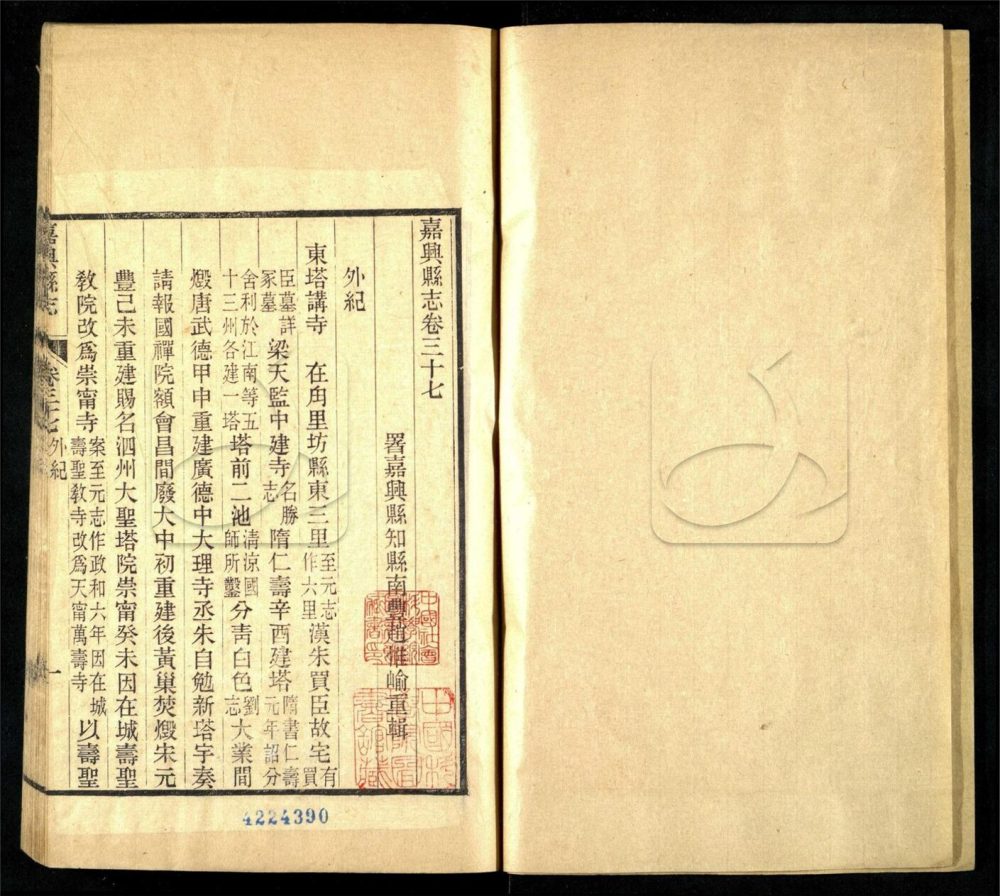 嘉興縣志卷三十七
署嘉興縣知縣南豐趙惟崳重輯
外紀
東塔講寺　在甪里坊縣東三里至元志作六里漢朱買臣故宅有買
臣墓詳冢墓梁天監中建寺名勝志隋仁壽辛酉建塔隋書仁壽元年詔分
舍利於江南等五十三州各建一塔塔前二池清涼國師所鑿分青白色劉志大業間
燬唐武德甲申重建廣德中大理寺丞朱自勉新塔宇奏
請報國禪院額會昌間廢大中初重建後黃巢焚燬宋元
豐己未重建賜名泗州大聖塔院崇甯癸未因在城壽聖
教院改爲崇甯寺案至元志作政和六年因在城壽聖教寺改爲天甯萬壽寺以壽聖
嘉興縣志
卷三十七
外紀
一
4224390